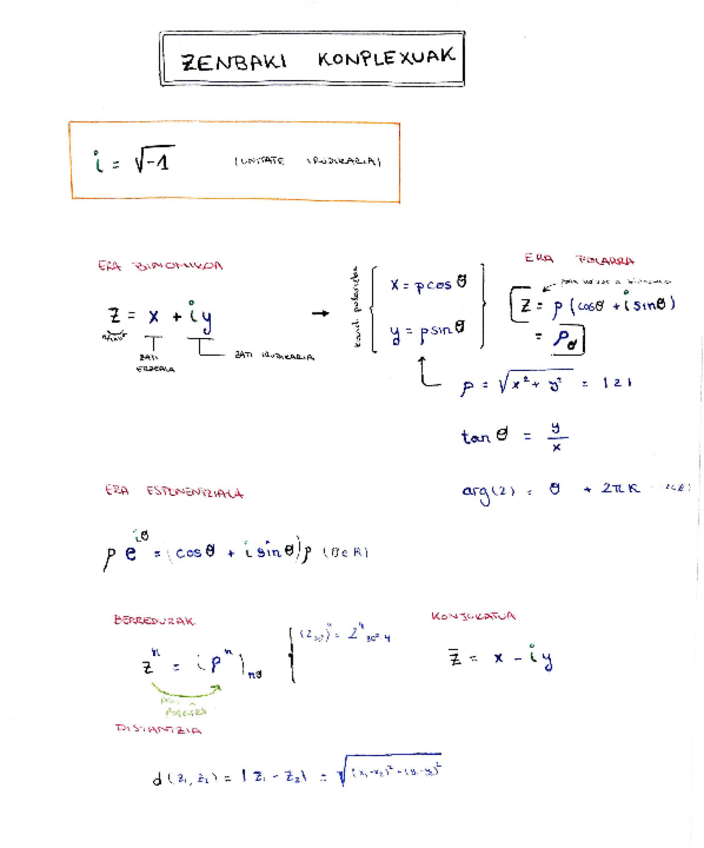 ZENBAKI KONPLEXUAK
i = √-1 (UNITATE IRUDIKARIA)
ERA BINOMIKOA
z = x + iy
ZATI ERREALA
ZATI IRUDIKARIA
→
x = ρcosθ
y = ρsinθ
ERA POLARRA
z = ρ(cosθ + i sinθ)
= ρθ
ρ = √x² + y² = |z|
tanθ = y/x
arg(z) = θ + 2πk
ERA ESPONENTZIALA
ρe^iθ = (cosθ + i sinθ)ρ (θ∈R)
BERREDURAK
zⁿ = (ρⁿ)nθ
(2₃₀)⁴ = 2⁴ 30·4
KONJUKATUA
z̄ = x - iy
DISTANTZIA
d(z₁, z₂) = |z₁ - z₂| = √(x₁-x₂)² - (y₁-y₂)²